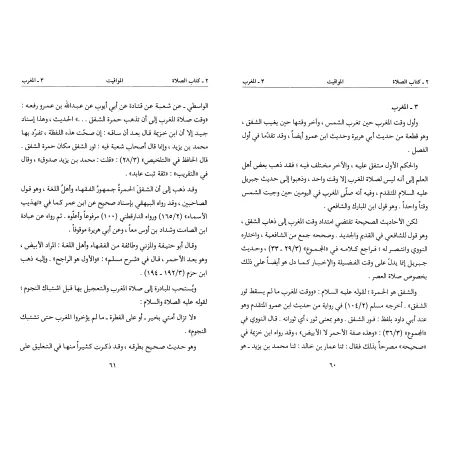 ٢ ـ كتاب الصلاة المواقيت ٣ ـ المغرب
٣ ـ المغرب
وأول وقت المغرب حين تغرب الشمس ، وآخر وقتها حين يغيب الشفق ،
وهو قطعة من حديث أبي هريرة وحديث ابن عمرو أيضاً ، وقد تقدما في أول
الفصل .
والحكم الأول متفق عليه ، والآخر مختلف فيه ؛ فقد ذهب بعض أهل
العلم إلى أنه ليس لصلاة المغرب إلا وقت واحد ، وذهبوا إلى حديث جبريل
عليه السلام المتقدم ، فيه أنه صلّى المغرب في اليومين حين وجبت الشمس
وقتاً واحداً . وهو قول ابن المبارك والشافعي .
لكن الأحاديث الصحيحة تقتضي امتداد وقت المغرب إلى ذهاب الشفق ،
وهو قول للشافعي في القديم والجديد . وصححه جمع من الشافعية ، واختاره
النووي وانتصر له ؛ فراجع كلامه في «المجموع» (٢٩/٣ ـ ٣٣) ، وحديث
جبريل إنما يدلّ على وقت الفضيلة والاختيار كما دل هو أيضاً على ذلك
بخصوص صلاة العصر .
والشفق هو الحمرة ؛ لقوله عليه السلام : «ووقت المغرب ما لم يسقط ثور
الشفق» . أخرجه مسلم (١٠٤/٢) في رواية من حديث ابن عمرو المتقدم وهو
عند أبي داود بلفظ : فور الشفق . وهو بمعنى ثور ، أي ثورانه . قال النووي في
«المجموع» (٣٦/٣) : «وهذه صفة الأحمر لا الأبيض» ، وقد رواه ابن خزيمة في
«صحيحه» مصرحاً بذلك فقال : ثنا عمار بن خالد : ثنا محمد بن يزيد ـ هو
٦٠
٢ ـ كتاب الصلاة المواقيت ٣ ـ المغرب
الواسطي ـ عن شعبة عن قتادة عن أبي أيوب عن عبدالله بن عمرو رفعه :
«وقت صلاة المغرب إلى أن تذهب حمرة الشفق . . .» الحديث ، وهذا إسناد
جيد إلا أن ابن خزيمة قال بعد أن ساقه : إن صحت هذه اللفظة ، تفرّد بها
محمد بن يزيد ، وإنما قال أصحاب شعبة فيه : ثور الشفق مكان حمرة الشفق .
قال الحافظ في «التلخيص» (٢٨/٣) : «قلت : محمد بن يزيد صدوق» ، وقال
في «التقريب» : «ثقة ثبت عابد» .
وقد ذهب إلى أن الشفق الحمرةُ جمهورُ الفقهاء وأهلُ اللغة ، وهو قول
الصاحبين ، وقد رواه البيهقي بإسناد صحيح عن ابن عمر كما في «تهذيب
الأسماء» (١٦٥/٢) ورواه الدارقطني (١٠٠) مرفوعاً وأعلّه . ثم رواه عن عبادة
ابن الصامت وشداد بن أوس معاً ، وعن أبي هريرة موقوفاً .
وقال أبو حنيفة والمزني وطائفة من الفقهاء وأهل اللغة : المراد الأبيض ،
وهو بعد الأحمر ، قال في «شرح مسلم» : «والأول هو الراجح» . وإليه ذهب
ابن حزم (١٩٢/٣ ـ ١٩٤) .
ويُستحب المبادرة إلى صلاة المغرب والتعجيل بها قبل اشتباك النجوم ؛
لقوله عليه الصلاة والسلام :
«لا تزال أمتي بخير ـ أو على الفطرة ـ ما لم يؤخروا المغرب حتى تشتبك
النجوم» .
وهو حديث صحيح بطرقه ، وقد ذكرت كثيراً منها في التعليق على
٦١